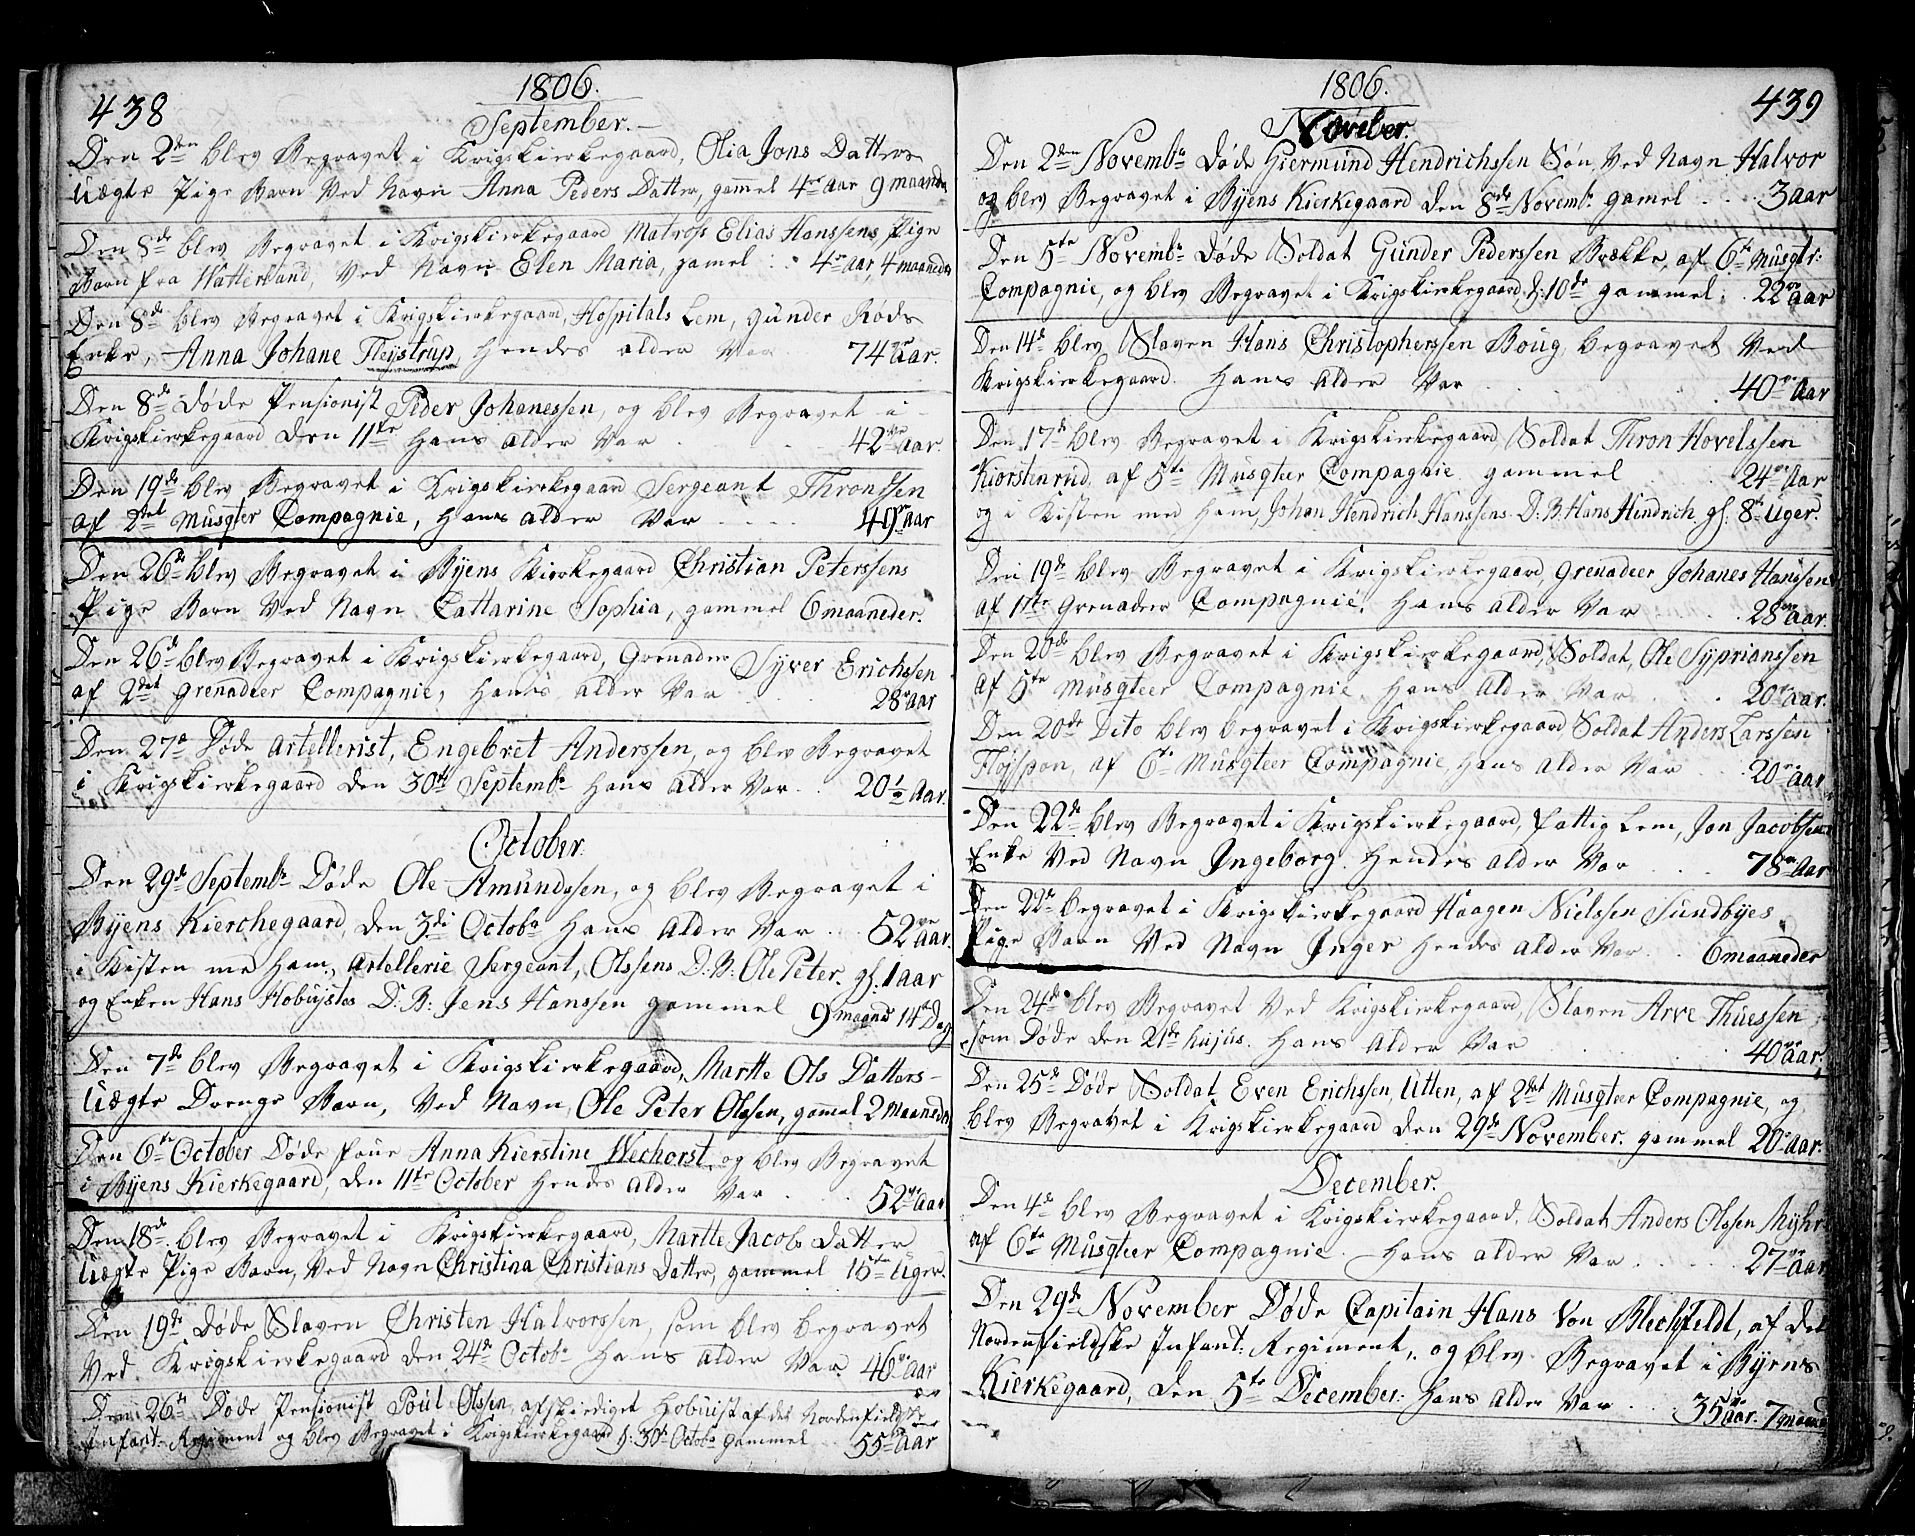 438
1806.
September.
Den 2den blev Begravet i Krigskirkegaard, Olia Jons Datters
Uægte Pige Barn Ved Navn Anna Peders Datter, gamel 4re aar 9 maander
Den 8de blev Begravet i Krigskirkegaard Matros Elias Hanssens Pige
Barn fra Watterland, Ved Navn Elen Maria, gamel 4re aar, 4 maaneder
Den 8de blev Begravet i Krigskirkegaard, Hospitals Lem, Gunder Røds
Enke, Anna Johane Fleystrup, Hendes alder Var 74re aar.
Den 8de Døde Pensionist Peder Johanessen, og blev Begravet i
Krigskirkegaard Den 11te Hans alder Var 42re aar.
Den 19de blev Begravet i Krigskirkegaard Sergeant Thronssen
af 2det Musqter Compagnie, Hans alder Var 49re aar
Den 26de blev Begravet i Byens Kierkegaard Christian Peterssens
Pige Barn Ved Navn Cattarine Sophia, gammel 6 maaneder.
Den 26de blev Begravet i Krigskirkegaard, Grenader Syver Erichssen
af 2det Grenadeer Compagnie, Hans alder Var 28re aar
Den 27de Døde Artellerist, Engebret Anderssen, og blev Begravet
i Krigskirkegaard Den 30te Septembr Hans alder Var 20½ aar.
October.
Den 29de Septembr Døde Ole Amundssen, og blev Begravet i
Byens Kierchegaard, Den 3die Octobr Hans alder Var 52re aar.
i Kisten me Ham, Artellerie Sergeant, Olssens D:B: Ole Peter. gl. 1 aar
og Enken Hans Hobuystes D:B: Jens Hanssen gammel 9 maand 14 Dag
Den 7de blev Begravet i Krigskirkegaard, Martte Ols Datters
Uægte Drenge Barn, Ved Navn, Ole Peter Olssen, gamel 2 maaneder
Den 6te October Døde Frue Anna Kierstine Wechorst, og blev Begravet
i Byens Kierkegaard, Den 11te October Hendes alder Var 52re aar
Den 18de blev Begravet i Krigskirkegaard, Martte Jacobs Datter
Uægte Pige Barn, Ved Navn Christina Christians Datter, gammel 15ten Uger.
Den 19de Døde Slaven Christen Halvorssen, som blev begravet
Ved Krigskirkegaard den 24de Octobr Hans alder Var 46re aar
Den 26de Døde Pensionist Poul Olssen, afskediget Hobuist af det Nordenfieldske
Infant: Regiment og blev Begravet i Krigskirkegaard d: 30te Octobr gammel 55re aar
439
1806.
Noveber.
Den 2den Novembr Døde Giermund Hendrichssen Søn, Ved Navn Halvor
og blev Begravet i Byens Kierkegaard Den 8de Novembr gamel 3 aar
Den 5te Novembr Døde Soldat Gunder Pederssen Brække, af 6te Musqtr:
Compagnie, og blev Begravet i Krigskirkegaard d: 10de gammel 22re aar
Den 14de blev Slaven Hans Christopherssen Boug, begravet Ved
Krigskirkegaard. Hans Alder Var 40re aar
Den 17de blev Begravet i Krigskirkegaard, Soldat Thron Hovelssen
Kiorstenrud, af 5te Musqteer Compagnie gammel 24re aar
og i Kisten med Ham, Johan Hendrich Hanssens D:B: Hans Hindrich, gl. 8te Uger.
Den 19de blev Begravet i Krigskirkegaard, Grenadeer Johanes Hanssen
af 1ste Grenadeer Compagnie, Hans alder Var 28re aar.
Den 20de blev Begravet i Krigskirkegaard, Soldat, Ole Syprianssen
af 5te Musqteer Compagnie, Hans alder Var 20re aar.
Den 20de Dito blev begravet i Krigskirkegaard Soldat Anders Larssen
Fløjspon, af 6te Musqteer Compagnie, Hans alder Var 20re aar
Den 22de blev Begravet i Krigskirkegaard, Fattig Lem, Jon Jacobsens
Enke Ved Navn Ingeborg. Hendes alder Var 78re aar
Den 22de begravet i Krigskirkegaard Haagen Nielssen Sundbyes
Pige Barn Ved Navn Inger Hendes alder Var 6 maaneder
Den 24de blev Begravet Ved Krigskirkegaard, Slaven Arve Thuessen
som Døde den 21de hujus. Hans alder Var 40re aar.
Den 25de Døde Soldat Even Erichssen Utten, af 2det Musqteer Compagnie, og
blev Begravet i Krigskirkegaard Den 29de November. gammel 20re aar.
December.
Den 4de blev Begravet i Krigskirkegaard, Soldat Anders Olssen Myhr
af 6te Musqteer Compagnie. Hans alder Var 27re aar
Den 29de November Døde Capitain Hans Von Blechfeldt, af det
Nordenfieldske Infant: Regiment, og blev Begravet i Byens
Kierkegaard, Den 5te December. Hans alder Var 35re aar. 7 maand